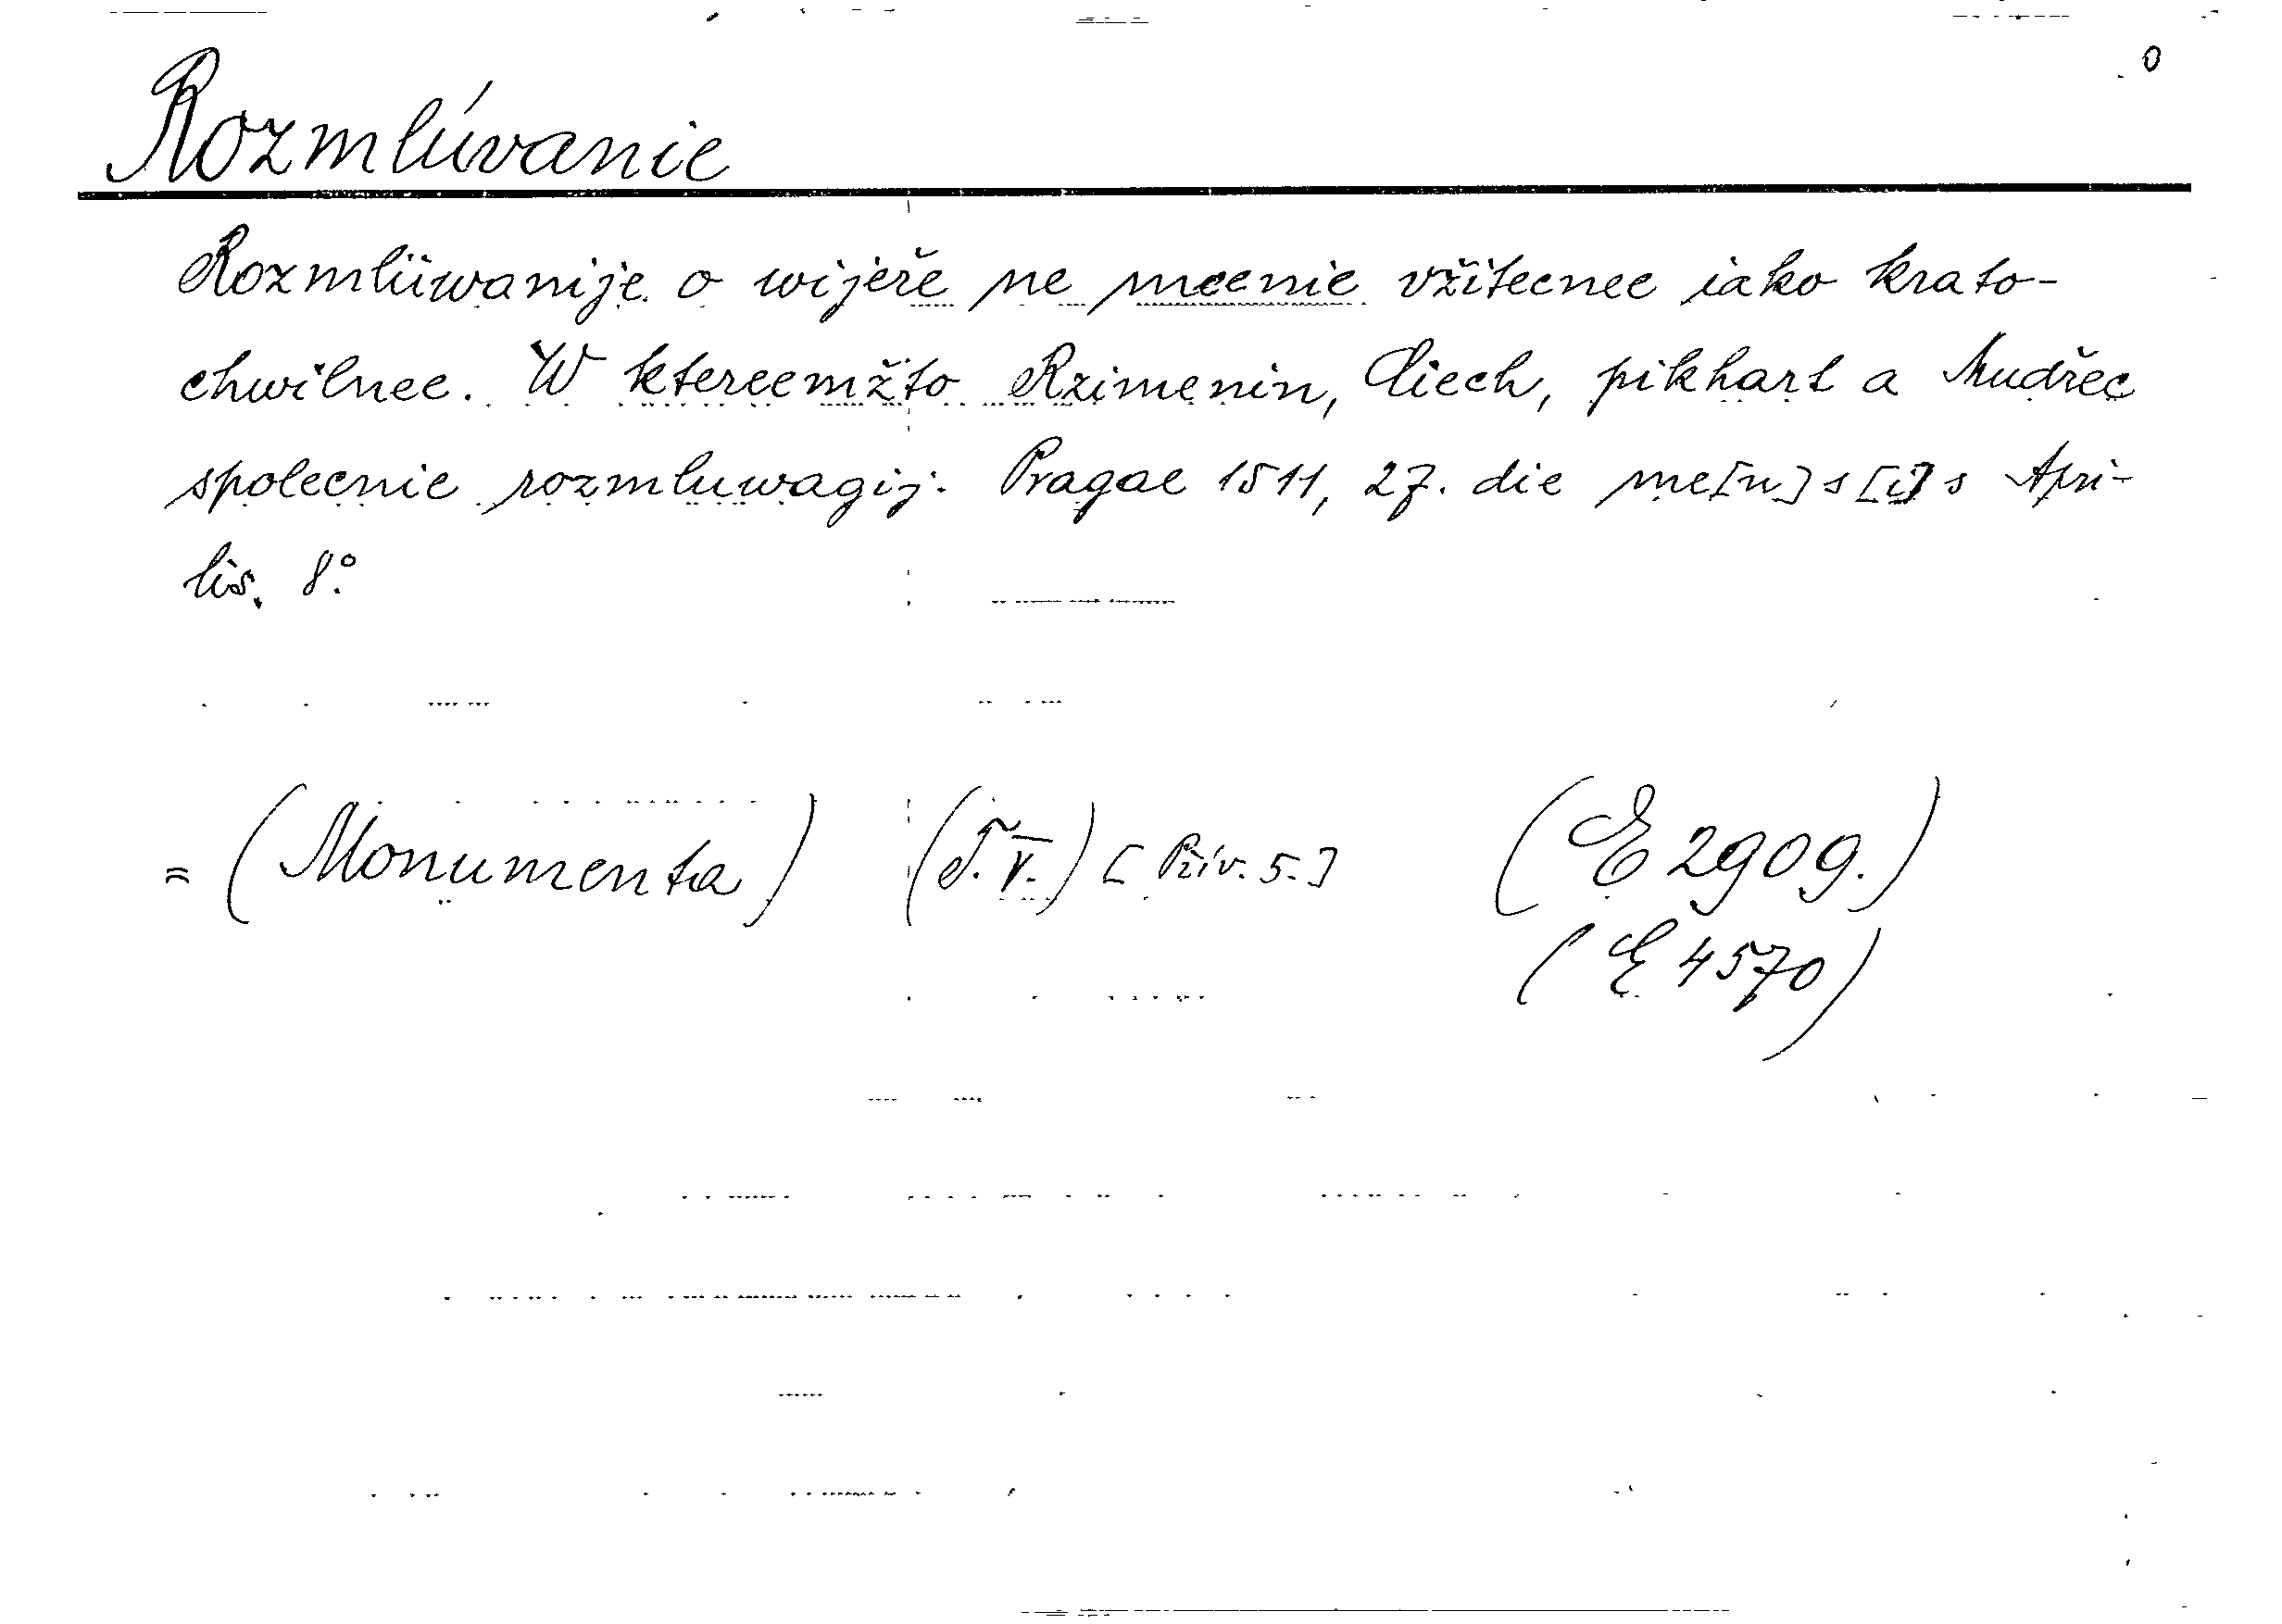 0
Rozmlúvanie
Rozmlüwanije o wijeře ne meenie vžitecnee iako krato-
chwilnee. W ktereemžto Rzimenin, Cziech, pikhart a Mudřec
spolecnie rozmluwagij. Pragae 1511, 27. die me[n]s[i]s Apri-
lis. 8°.
= (Monumenta) (T. V.) [Přív. 5.] (E 2909.)
(E 4570)